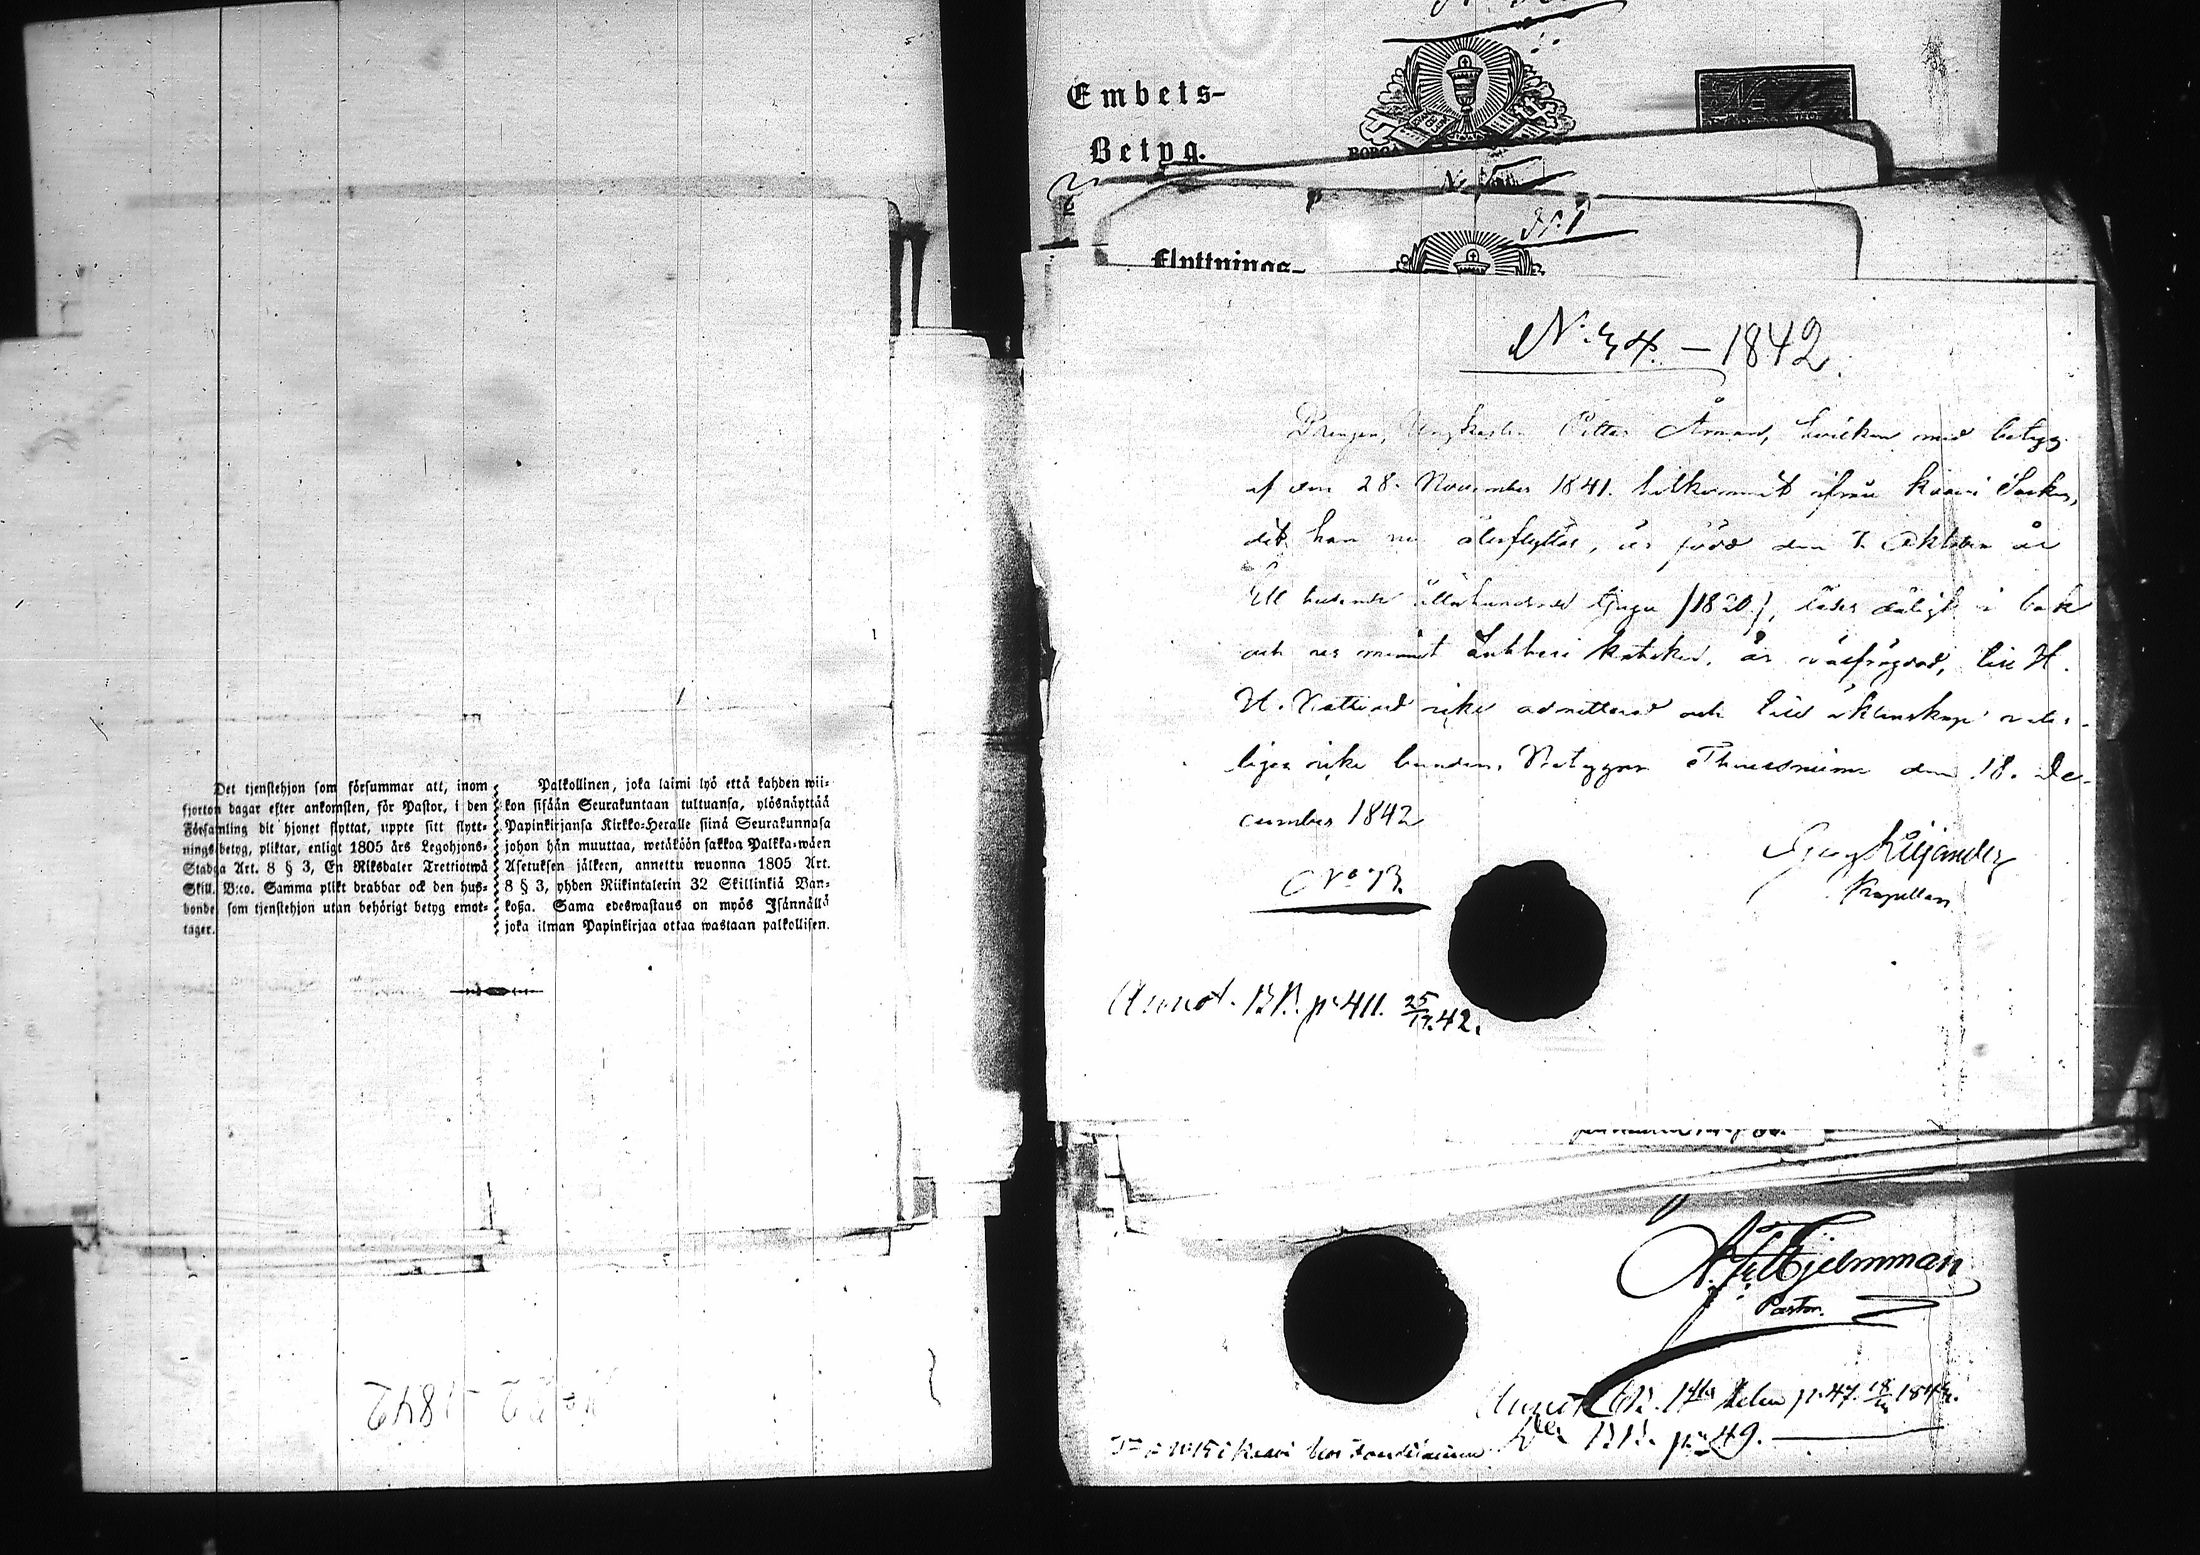 Det tjenstehjon som försummar att, inom
fjorton dagar efter ankomsten, för Pastor, i den
Församling dit hjonet flyttat, uppte sitt flytt-
ningsbetyg, pliktar, enligt 1805 års Legohjons-
Stadga Art. 8 § 3, En Riksdaler Trettiotwå
Skill. B:co. Samma plikt drabbar ock den hus-
bonde som tjenstehjon utan behörigt betyg emot-
tager.
Palkollinen, joka laimi lyö että kahden wii-
kon sisään Seurakuntaan tultuansa, ylösnäyttää
Papinkirjansa Kirkko-Heralle siinä Seurakunnasa
johon hän muuttaa, wetäköön sakkoa Palkka-wäen
Asetuksen jälkeen, annettu wuonna 1805 Art.
8 § 3, yhden Riikintalerin 32 Skillinkiä Ban-
koßa. Sama edeswastaus on myös Isännällä
joka ilman Papinkirjaa ottaa wastaan palkollisen.
22 - 1842
Embets-
Betyg.
BORGÅ
No
No
N. 1
Flyttnings-
N. 34. - 1842.
Drengen, Ungkarlen Petter Åman, hvilken med betyg
af den 28. November 1841. hitkommit ifrån Kaavi Socken,
dit han nu återflyttar, är född den 7. Oktober år
Ett tusende åttahundrade tjugu (1820), läser dåligt i bok
och ur minnet Lutheri kateches, är välfrägdad, till H.
H. Nattvard icke admitterad och till äktenskap veter-
ligen icke bunden. Betygar Thuusniemi den 18. De-
cember 1842
Georg Liljander
Kapellan
No 73.
Annot. B.B. p. 411. 25/12.42.
A. F. Hjelmman
Pastor.
Annot. B.B. 1:sta delen p. 47. 18/ 184
B.B. p. 49.